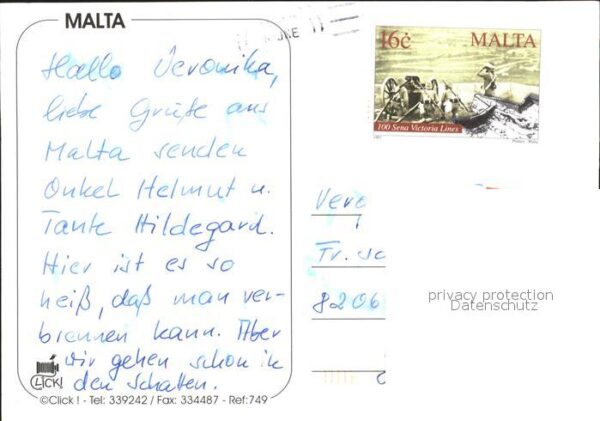 MALTA
Hallo Veronika,
liebe Grüße aus
Malta senden
Onkel Helmut u.
Tante Hildegard.
Hier ist es so
heiß, daß man ver-
brennen kann. Aber
wir gehen schon in
den Schatten.
CLICK!
©Click ! - Tel: 339242 / Fax: 334487 - Ref:749
16ċ MALTA
100 Sena Victoria Lines
Vero
Tr. sc
8206
privacy protection
Datenschutz